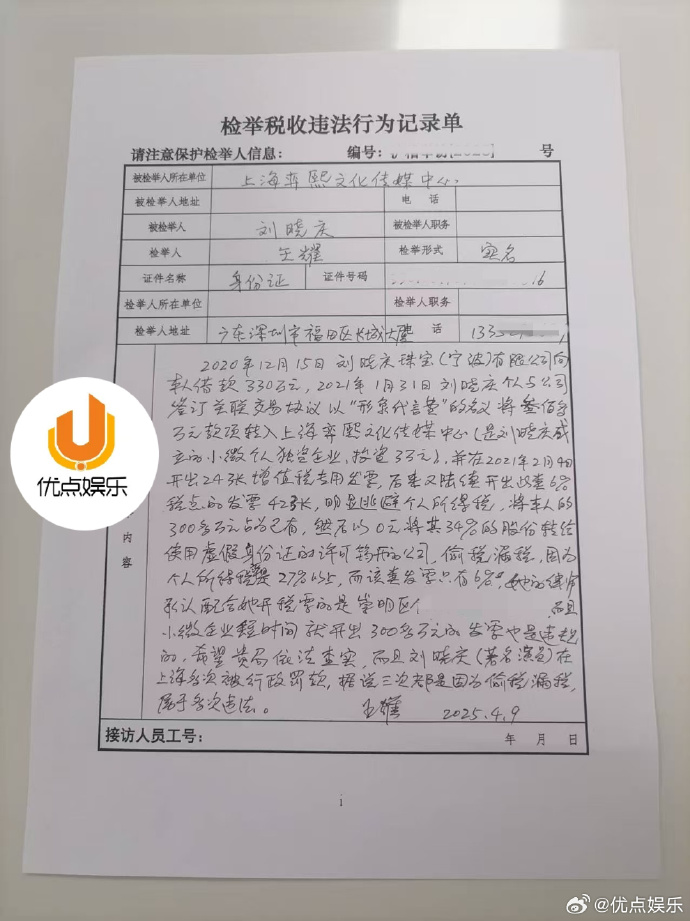 检举税收违法行为记录单
请注意保护检举人信息： 编号： 号
被检举人所在单位 上海弈熙文化传媒中心
被检举人地址 电 话
被检举人 刘晓庆 被检举人职务
检举人 王耀 检举形式 实名
证件名称 身份证 证件号码 16
检举人所在单位 检举人职务
检举人地址 广东深圳市福田区长城大厦 话 133
2020年12月15日刘晓庆珠宝(宁波)有限公司向
本人借款330万元，2021年1月31日刘晓庆个人与公司
签订关联交易协议以“形象代言费”的名义将叁佰多
万元款项转入上海弈熙文化传媒中心(是刘晓庆成
立的小微个人独资企业，投资3万元)，并在2021年2月4日
开出24张增值税专用发票，后来又陆续开出此类6%
税点的发票42张，明显逃避个人所得税，将本人的
300多万元占为己有，然后以0元将其34%的股份转给
使用虚假身份证的许可筠所的公司，偷税漏税，因为
个人所得税是27%以上，而该查发票只有6%，她的律师
承认配合她开税票的是崇明区个 而且
小微企业短时间就开出300多万元的发票也是违规
的，希望贵局依法查实，而且刘晓庆(著名演员)在
上海多次被行政罚款，据说三次都是因为偷税漏税，
属于多次违法。 王耀 2025.4.9
内容
接访人员工号： 年 月 日
i
优点娱乐
@优点娱乐